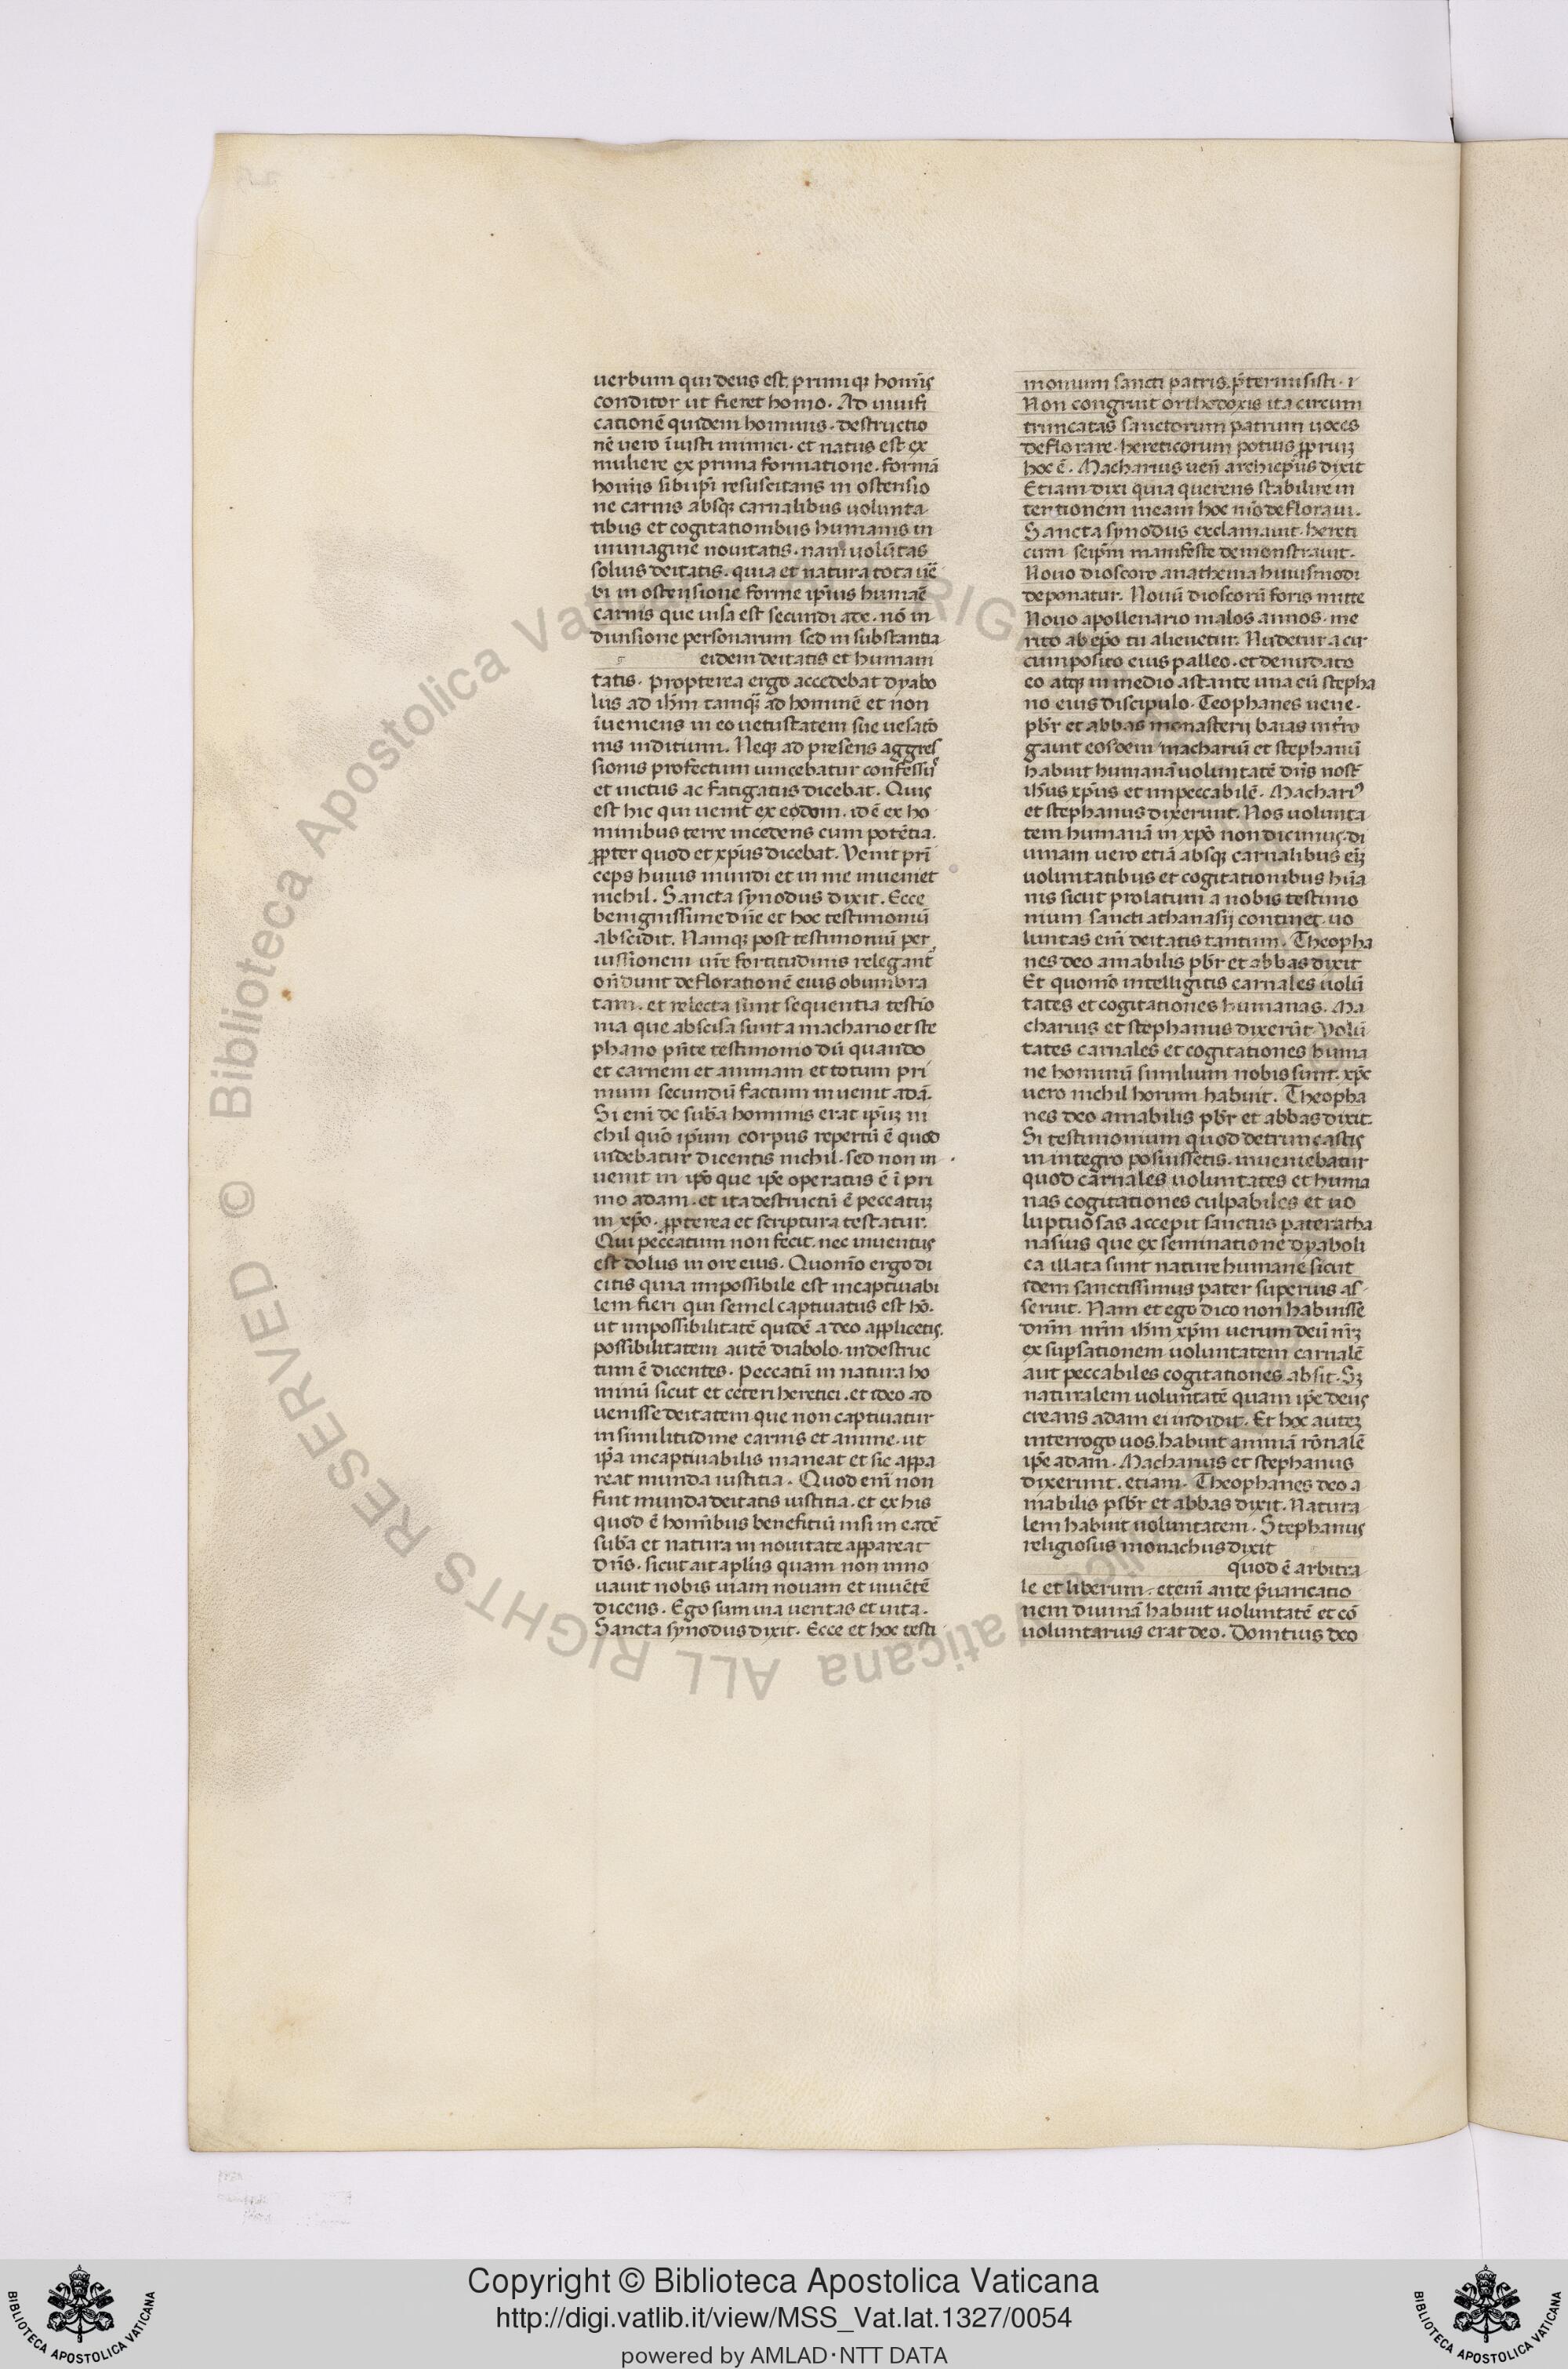 uerbum qui deus est. primiqꝫ homīs
conditor ut fieret homo. Ad uiuifi
cationē quidem hominis. destructio
nē uero īiusti inimici. et natus est ex
muliere ex prima formatione. formā
homīs sibiip̄i resuscitans in ostensio
ne carnis absqꝫ carnalibus uolunta
tibus et cogitationibus humanis in
immagine nouitatis. nam uolūtas
solius deitatis. quia et natura tota ūē
bi in ostensione forme ip̄ius humāē
carnis que uisa est secundi ade. nō in
diuisione personarum sed in substantia
eidem deitatis et humani
tatis. propterea ergo accedebat dyabo
lus ad ih̄m tamqꝫ ad hominē et non
īueniens in eo uetustatem sue uesatō
nis inditum. Neqꝫ ad presens aggres
sionis profectum uincebatur confessū
et uictus ac fatigatus dicebat. Quis
est hic qui uenit ex edom. id ē ex ho
minibus terre incedens cum potētia.
ꝓpter quod et xp̄us dicebat. Venit prī
ceps huius mundi et in me inueniet
nichil. Sancta synodus dixit. Ecce
benignissime dn̄e et hoc testimoniū
abscidit. Namqꝫ post testimoniū per
iussionem ur̄e fortitudinis relegant̄
on̄dunt deflorationē eius obumbra
tam. et relecta sunt sequentia testio
nia que abscisa sunt a machario et ste
phano pn̄te testimonio dū quando
et carnem et animam et totum pri
mum secundū factum inuenit adā.
Si enī de sub̄a hominis erat ip̄iꝫ ni
chil quō ip̄ium corpus repertū ē quod
uidebatur dicentis nichil. sed non in
uenit in ip̄o que ip̄e operatus ē ī pri
mo adam. et ita destructū ē peccatuꝫ
in xp̄o. ꝓpterea et scriptura testatur.
Qui peccatum non fecit. nec inuentus
est dolus in ore eius. Quomō ergo di
citis quia impossibile est incaptiuabi
lem fieri qui semel captiuatus est hō.
ut impossibilitatē quidē a deo applicetis.
possibilitatem autē diabolo. indestruc
tum ē dicentes. peccatū in natura ho
minū sicut et ceteri heretici. et ideo ad
uenisse deitatem que non captiuatur
in similitudine carnis et anime. ut
ip̄a incaptiuabilis maneat et sic appa
reat munda iustitia. Quod enī non
fuit munda deitatis iustitia. et ex his
quod ē homībus benefitiū nisi in eadē
sub̄a et natura in nouitate appareat
dn̄s. sicut ait apl̄us quam non inno
uauit nobis uiam nouam et inuētē
dicens. Ego sum uia ueritas et uita.
Sancta synodus dixit. Ecce et hoc testi
monium sancti patris p̄termisisti. i
Non congruit orthodoxis ita circum
truncatas sanctorum patrum uoces
deflorare. hereticorum potius ꝓpriuꝫ
hoc ē. Macharius uen̄ archiep̄us dixit
Etiam dixi quia querens stabilire in
tentionem meam hoc mō defloraui.
Sancta synodus exclamauit. hereti
cum seip̄m manifeste demonstrauit.
Nouo dioscoro anathema huiusmodi
deponatur. Nouū dioscorū foris mitte
Nouo apollenario malos annos. me
rito ab ep̄o tu alienetur. Nudetur a cir
cumposito eius palleo. et denudato
eo atqꝫ in medio astante una cū stepha
no eius discipulo. Teophanes uene.
pbr̄ et abbas monasterij baias int̄ro
gauit eosdem machariū et stephanū
habuit humanā uoluntatē dn̄s nost̄
ih̄us xp̄us et impeccabilē. Machari⁹
et stephanus dixerunt. Nos uolunta
tem humanā in xp̄o non dicimus. di
uinam uero etiā absqꝫ carnalibus eiꝫ
uoluntatibus et cogitationibus hūa
nis sicut prolatum a nobis testimo
nium sancti athanasij continet. uo
luntas enī deitatis tantum. Theopha
nes deo amabilis pbr̄ et abbas dixit
Et quomō intelligitis carnales uolū
tates et cogitationes humanas. Ma
charius et stephanus dixerūt. Volū
tates carnales et cogitationes huma
ne hominū similium nobis sunt. xp̄c
uero nichil horum habuit. Theopha
nes deo amabilis pbr̄ et abbas dixit.
Si testimonium quod detruncastis
in integro posuissetis. inueniebatur
quod carnales uoluntates et huma
nas cogitationes culpabiles et uo
luptuosas accepit sanctus pater atha
nasius que ex seminatione dyaboli
ca illata sunt nature humane sicut
idem sanctissimus pater superius as
seruit. Nam et ego dico non habuisse
dnm̄ nrm̄ ih̄m xp̄m uerum deū nr̄ꝫ
ex sup̄sationem uoluntatem carnalē
aut peccabiles cogitationes. absit. Sꝫ
naturalem uoluntatē quam ip̄e deus
creans adam ei indidit. Et hoc auteꝫ
interrogo uos. habuit animā rōnalē
ip̄e adam. Macharius et stephanus
dixerunt. etiam. Theophanes deo a
mabilis psbr̄ et abbas dixit. Natura
lem habuit uoluntatem. Stephanus
religiosus monachus dixit
quod ē arbitra
le et liberum. etenī ante p̄uaricatio
nem diuinā habuit uoluntatē et cō
uoluntarius erat deo. Domitius deo
© Biblioteca Apostolica Vaticana ALL RIGHTS RESERVED
Copyright © Biblioteca Apostolica Vaticana
http://digi.vatlib.it/view/MSS_Vat.lat.1327/0054
powered by AMLAD·NTT DATA
BIBLIOTECA APOSTOLICA VATICANA
BIBLIOTECA APOSTOLICA VATICANA